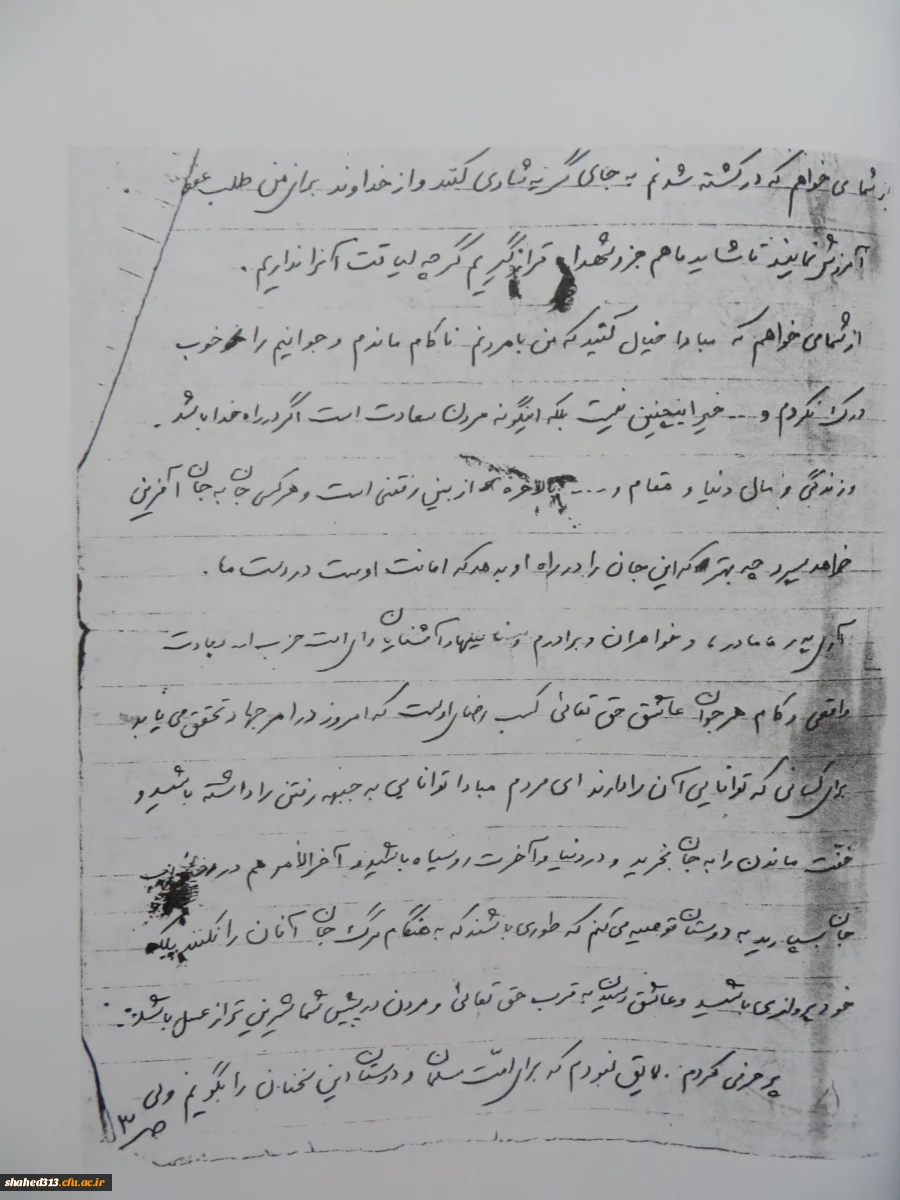 از شما می خواهم که در کشته شدنم به جای گریه شادی کنند و از خداوند برای من طلب عفو
آمرزش نمایند تا شاید ما هم جزو شهدا قرار گیریم گرچه لیاقت آنرا نداریم .
از شما می خواهم که مبادا خیال کنید که من با مردنم ناکام ماندم و جوانیم را خوب
درک نکردم و ... خیر اینچنین نیست بلکه اینگونه مردن سعادت است اگر در راه خدا باشد .
و زندگی و مال دنیا و مقام و .... بالاخره از بین رفتنی است و هرکس جان به جان آفرین
خواهد سپرد چه بهتر که این جان را در راه او بدهد که امانت اوست در دست ما .
آری پدر ، مادر ، و خواهران و برادرم و آشنایان و ای امت حزب اله سعادت
واقعی و کام هر جوان عاشق حق تعالی کسب رضای اوست که امروز در امر جهاد تحقق می یابد
برای کسانی که توانایی آن را دارند ای مردم مبادا توانایی به جبهه رفتن را داشته باشید و
ماندن را به جان بخرید و در دنیا و آخرت روسیاه باشید و آخر الامر هم در
جان بسپارید به دوستان توصیه می کنم که طوری باشند که به هنگام مرگ جان آنان را نکنند بلکه
خود پروازی باشید و عاشق رسیدن به قرب حق تعالی و مردن در پیش شما شیرین تر از عسل باشد .
پر حرفی کردم . لایق نبودم که برای امت مسلمان و دوستان این سخنان را بگویم ولی
ص ۳
shahed313.cfu.ac.ir